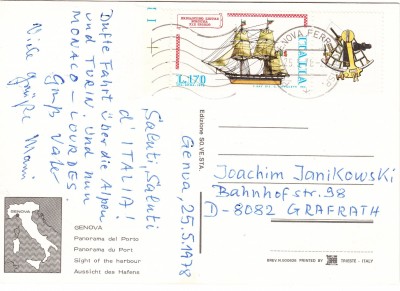 Genova, 25.5.1978
Saluti, Saluti
d'ITALIA!
Dufte Fahrt über die Alpen
und TURIN. Und nun
MONACO - LOURDES.
Gruß Vater
Viele Grüße Mami
ITALIA
L.170
Edizione SO.VE.STA.
Joachim Janikowski
Bahnhofstr. 98
D-8082 GRAFRATH
GENOVA
GENOVA
Panorama del Porto
Panorama du Port
Sight of the harbour
Aussicht des Hafens
PRINTED BY
TRIESTE - ITALY